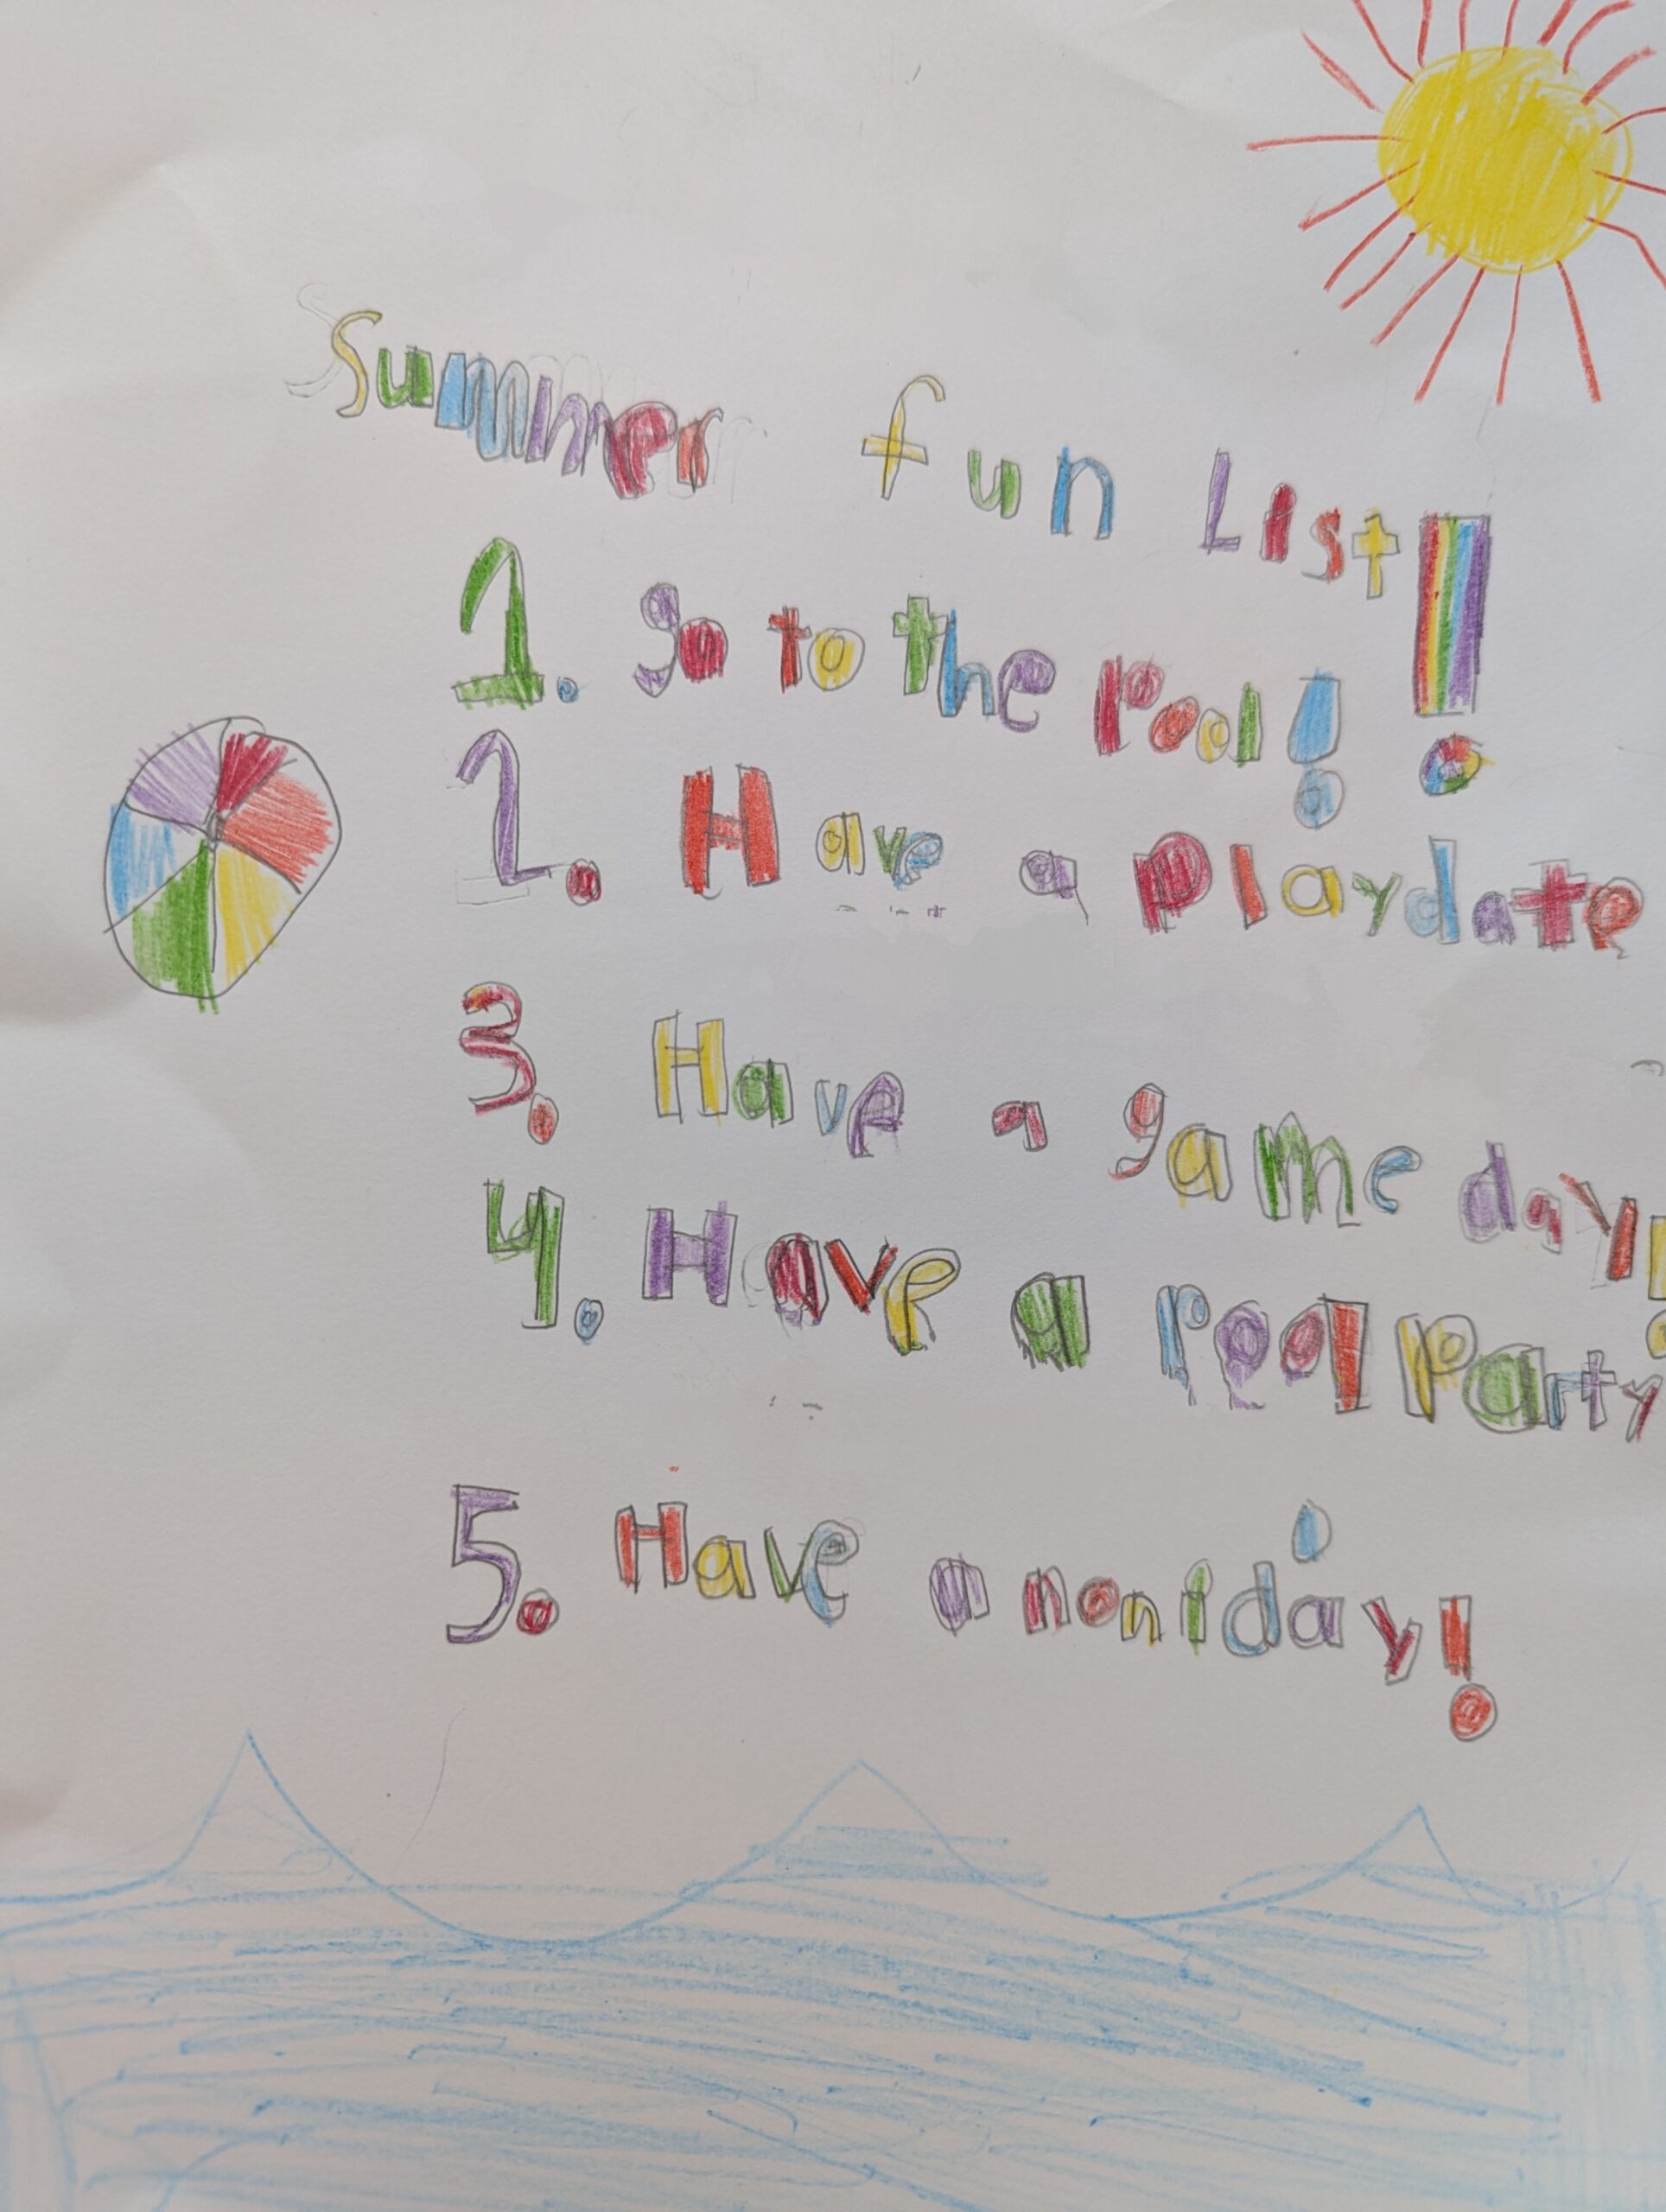 Summer fun List!
1. go to the pool!
2. Have a playdate
3. Have a game day!
4. Have a pool party
5. Have a noniday!